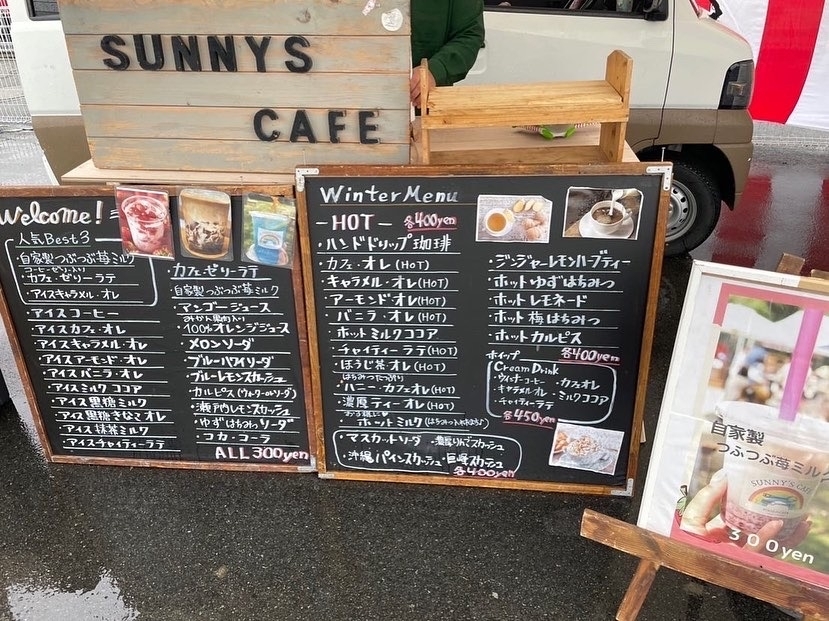 SUNNYS
CAFE
Welcome!
人気Best3
自家製つぶつぶ苺ミルク
コーヒーゼリー入り
・カフェ・ゼリーラテ
・アイスキャラメル・オレ
・アイスコーヒー
・アイスカフェ・オレ
・アイスキャラメル・オレ
・アイスアーモンド・オレ
・アイスバニラ・オレ
・アイスミルクココア
・アイス黒糖ミルク
・アイス黒糖きなこオレ
・アイス抹茶ミルク
・アイスチャイティーラテ
・カフェゼリーラテ
自家製つぶつぶ苺ミルク
・マンゴージュース
みかん果肉入り
・100%オレンジジュース
・メロンソーダ
・ブルーハワイソーダ
・ブルーレモンスカッシュ
・カルピス(ウォーターorソーダ)
・瀬戸内レモンスカッシュ
・ゆずはちみつソーダ
・コカ・コーラ
ALL 300yen
Winter Menu
-HOT- 各400yen
・ハンドドリップ珈琲
・カフェ・オレ(HOT)
・キャラメル・オレ(HOT)
・アーモンド・オレ(HOT)
・バニラ・オレ(HOT)
・ホットミルクココア
・チャイティーラテ(HOT)
・ほうじ茶・オレ(HOT)
はちみつたっぷり
・ハニー・カフェオレ(HOT)
・濃厚ティーオレ(HOT)
・ホットミルク
・マスカットソーダ ・濃厚りんごスカッシュ
・沖縄パインスカッシュ・巨峰スカッシュ
各400yen
・ジンジャーレモンハーブティー
・ホットゆずはちみつ
・ホットレモネード
・ホット梅はちみつ
・ホットカルピス
各400yen
ホイップ
Cream Drink
・ウィンナーコーヒー ・カフェオレ
・キャラメルオレ ・ミルクココア
・チャイティーラテ
各450yen
自家製
つぶつぶ苺ミルク
SUNNY'S CAFE
300yen